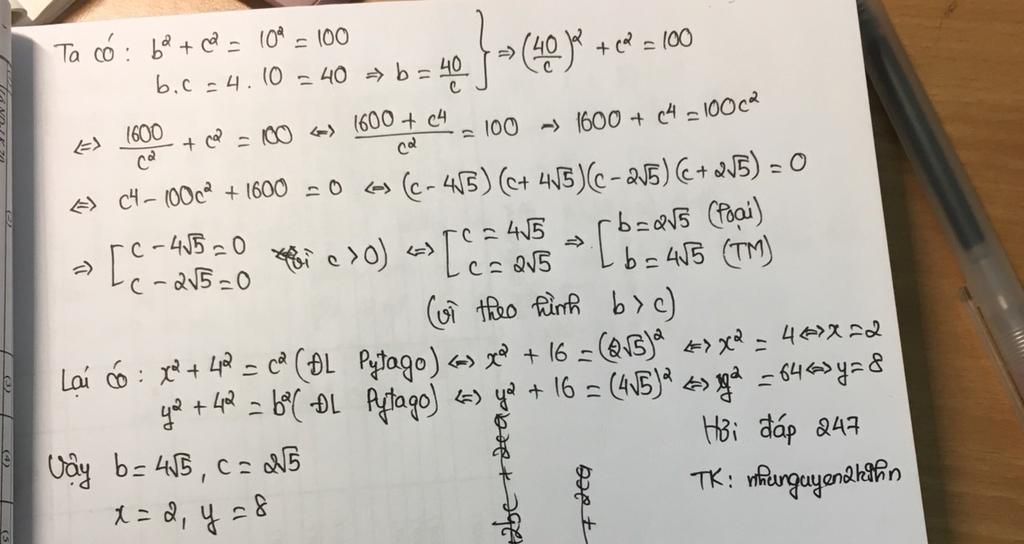 Ta có: b² + c² = 10² = 100
b.c = 4.10 = 40 => b = 40/c } => (40/c)² + c² = 100
<=> 1600/c² + c² = 100 <=> (1600 + c⁴)/c² = 100 → 1600 + c⁴ = 100c²
<=> c⁴ - 100c² + 1600 = 0 <=> (c - 4√5)(c + 4√5)(c - 2√5)(c + 2√5) = 0
=> [ c - 4√5 = 0 (vì c > 0) <=> [ c = 4√5 => [ b = 2√5 (loại)
c - 2√5 = 0 c = 2√5 b = 4√5 (TM)
(vì theo hình b > c)
Lại có: x² + 4² = c² (ĐL Pytago) <=> x² + 16 = (2√5)² <=> x² = 4 <=> x = 2
y² + 4² = b² (ĐL Pytago) <=> y² + 16 = (4√5)² <=> y² = 64 <=> y = 8
Vậy b = 4√5, c = 2√5
x = 2, y = 8
Hỏi đáp 247
TK: